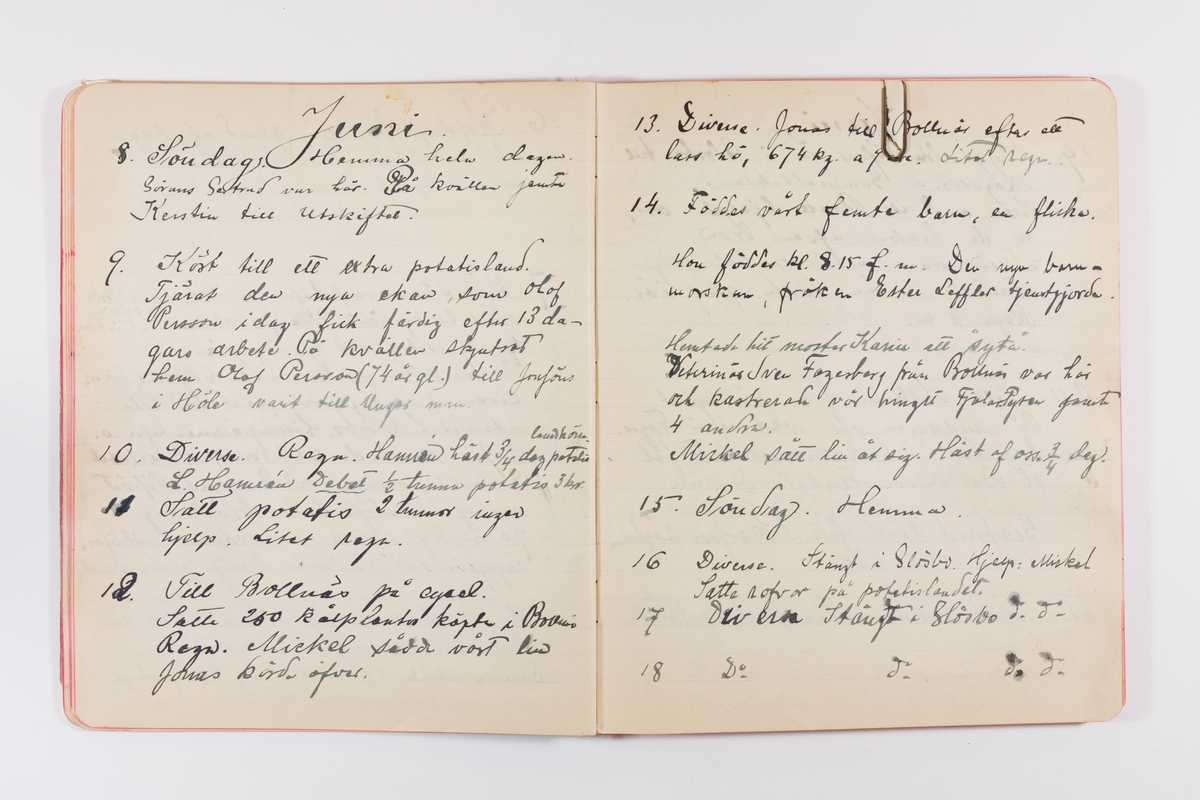 Juni.
8. Söndag. Hemma hela dagen.
Görans Gertrud var här. På kvällen jemte
Kerstin till Utskiftet.
9. Kört till ett extra potatisland.
Tjärat den nya ekan, som Olof
Persson idag fick färdig efter 13 da-
gars arbete. På kvällen skjutsat
hem Olof Persson (74 år gl.) till Jonjöns
i Höle varit till Ungar m.m.
landköra
10. Diverse. Regn. Hamrén häst 3/4 dag potatis
L. Hamrén Debet 1/2 tunna potatis 3 kr.
11 Satt potatis 2 tunnor ingen
hjelp. Litet regn.
12. Till Bollnäs på cycel.
Satte 250 kålplantor köpta i Bollnäs
Regn. Mickel sådde vårt lin
Jonas körde öfver.
13. Diverse. Jonas till Bollnäs efter ett
lass hö, 674 kg. a 7 öre. Litet regn.
14. Föddes vårt femte barn, en flicka.
Hon föddes kl. 8.15 f.m. Den nya barn-
morskan, fröken Ester Leffler tjenstgjorde.
Hemtade hit moster Karin att syta.
Veterinär Sven Fagerberg från Bollnäs var här
och kastrerade vår hingst Fjalar Pysen jemte
4 andra.
Mickel sått lin åt sig. Häst af oss 3/4 dag.
15. Söndag. Hemma.
16 Diverse. Stängt i Glösbo. Hjelp: Mickel
Satte rofvor på potatislandet.
17 Diverse Stängt i Glösbo do do
18 Do do do do